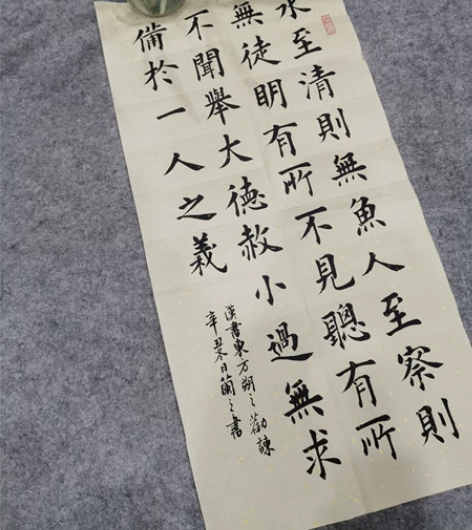 水至清則無魚人至察則
無徒明有所不見聰有所
不聞舉大德赦小過無求
備於一人之義
漢書東方朔之勸諫
辛丑冬日蘭之書